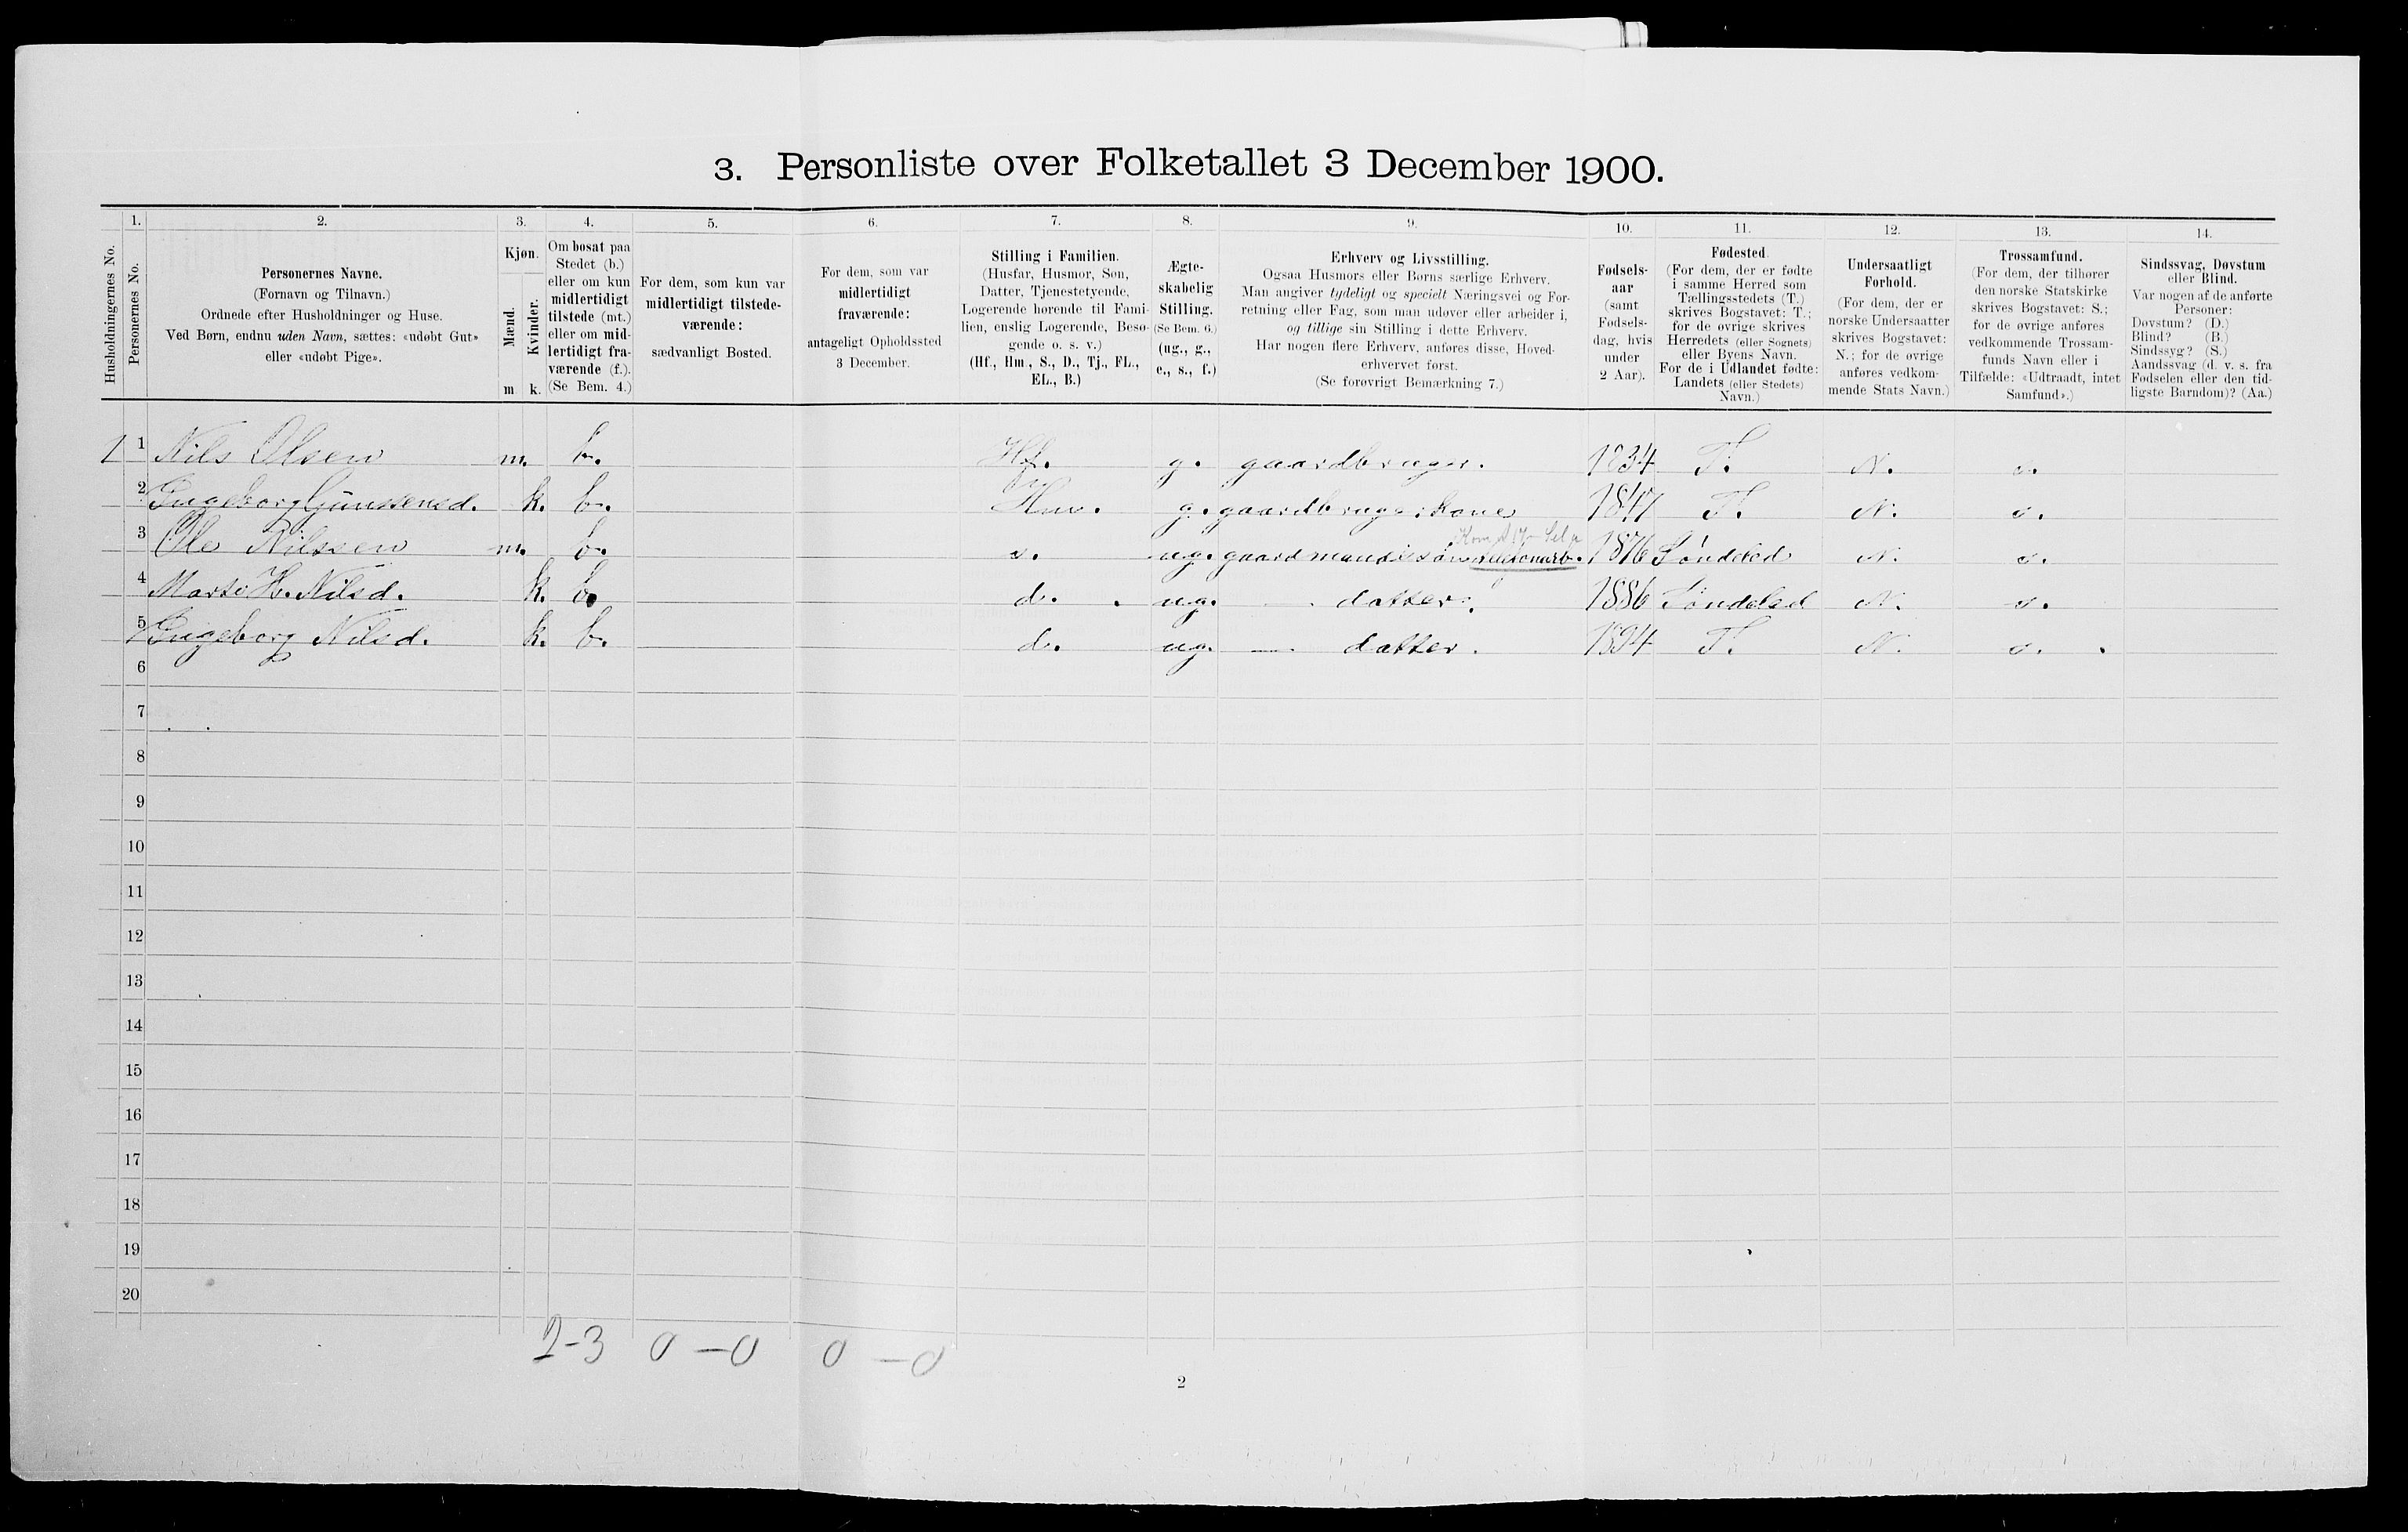 3. Personliste over Folketallet 3 December 1900.
Husholdningernes No.
1. Personernes No.
2. Personernes Navne.
(Fornavn og Tilnavn.)
Ordnede efter Husholdninger og Huse.
Ved Børn, endnu uden Navn, sættes: «udøbt Gut»
eller «udøbt Pige».
3. Kjøn.
Mænd. Kvinder.
m k.
4. Om bosat paa
Stedet (b.)
eller om kun
midlertidigt
tilstede (mt.)
eller om mid-
lertidigt fra-
værende (f.).
(Se Bem. 4.)
5. For dem, som kun var
midlertidigt tilstede-
værende:
sædvanligt Bosted.
6. For dem, som var
midlertidigt
fraværende:
antageligt Opholdssted
3 December.
7. Stilling i Familien.
(Husfar, Husmor, Søn,
Datter, Tjenestetyende,
Logerende hørende til Fami-
lien, enslig Logerende, Besø-
gende o. s. v.)
(Hf., Hm., S., D., Tj., FL.,
EL., B.)
8. Ægte-
skabelig
Stilling.
(Se Bem. 6.)
(ug., g.,
e., s., f.)
9. Erhverv og Livsstilling.
Ogsaa Husmors eller Børns særlige Erhverv.
Man angiver tydeligt og specielt Næringsvei og For-
retning eller Fag, som man udøver eller arbeider i,
og tillige sin Stilling i dette Erhverv.
Har nogen flere Erhverv, anføres disse, Hoved-
erhvervet først.
(Se forøvrigt Bemærkning 7.)
10. Fødsels-
aar
(samt
Fødsels-
dag, hvis
under
2 Aar).
11. Fødested.
(For dem, der er fødte
i samme Herred som
Tællingsstedets (T.)
skrives Bogstavet: T.;
for de øvrige skrives
Herredets (eller Sognets)
eller Byens Navn.
For de i Udlandet fødte:
Landets (eller Stedets)
Navn.)
12. Undersaatligt
Forhold.
(For dem, der er
norske Undersaatter
skrives Bogstavet:
N.; for de øvrige
anføres vedkom-
mende Stats Navn.)
13. Trossamfund.
(For dem, der tilhører
den norske Statskirke
skrives Bogstavet: S.;
for de øvrige anføres
vedkommende Trossam-
funds Navn eller i
Tilfælde: «Udtraadt, intet
Samfund».)
14. Sindssvag, Døvstum
eller Blind.
Var nogen af de anførte
Personer:
Døvstum? (D.)
Blind? (B.)
Sindssyg? (S.)
Aandssvag (d. v. s. fra
Fødselen eller den tid-
ligste Barndom)? (Aa.)
1 1 Nils Olsen m. b. Hf. g. gaardbruger. 1834 T. N. s.
2 Ingeborg Gunssensd. k. b. Hm. g. gaardbrugerkone 1847 T. N. s.
3 Ole Nilssen m. b. s. ug. gaardmandssøn 1876 Søndeled N. s.
4 Marte H. Nilsd. k. b. d. ug. — datter. 1886 Søndeled N. s.
5 Ingeborg Nilsd. k. b. d. ug. — datter. 1894 T. N. s.
6
7
8
9
10
11
12
13
14
15
16
17
18
19
20
2-3 0-0 0-0
2